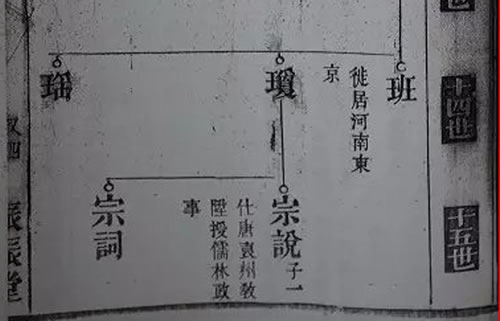 十四世
十五世
班
徙居河南東
京
瓊
宗說
子一
仕唐袁州教
陞授儒林政
事
瑶
宗詞